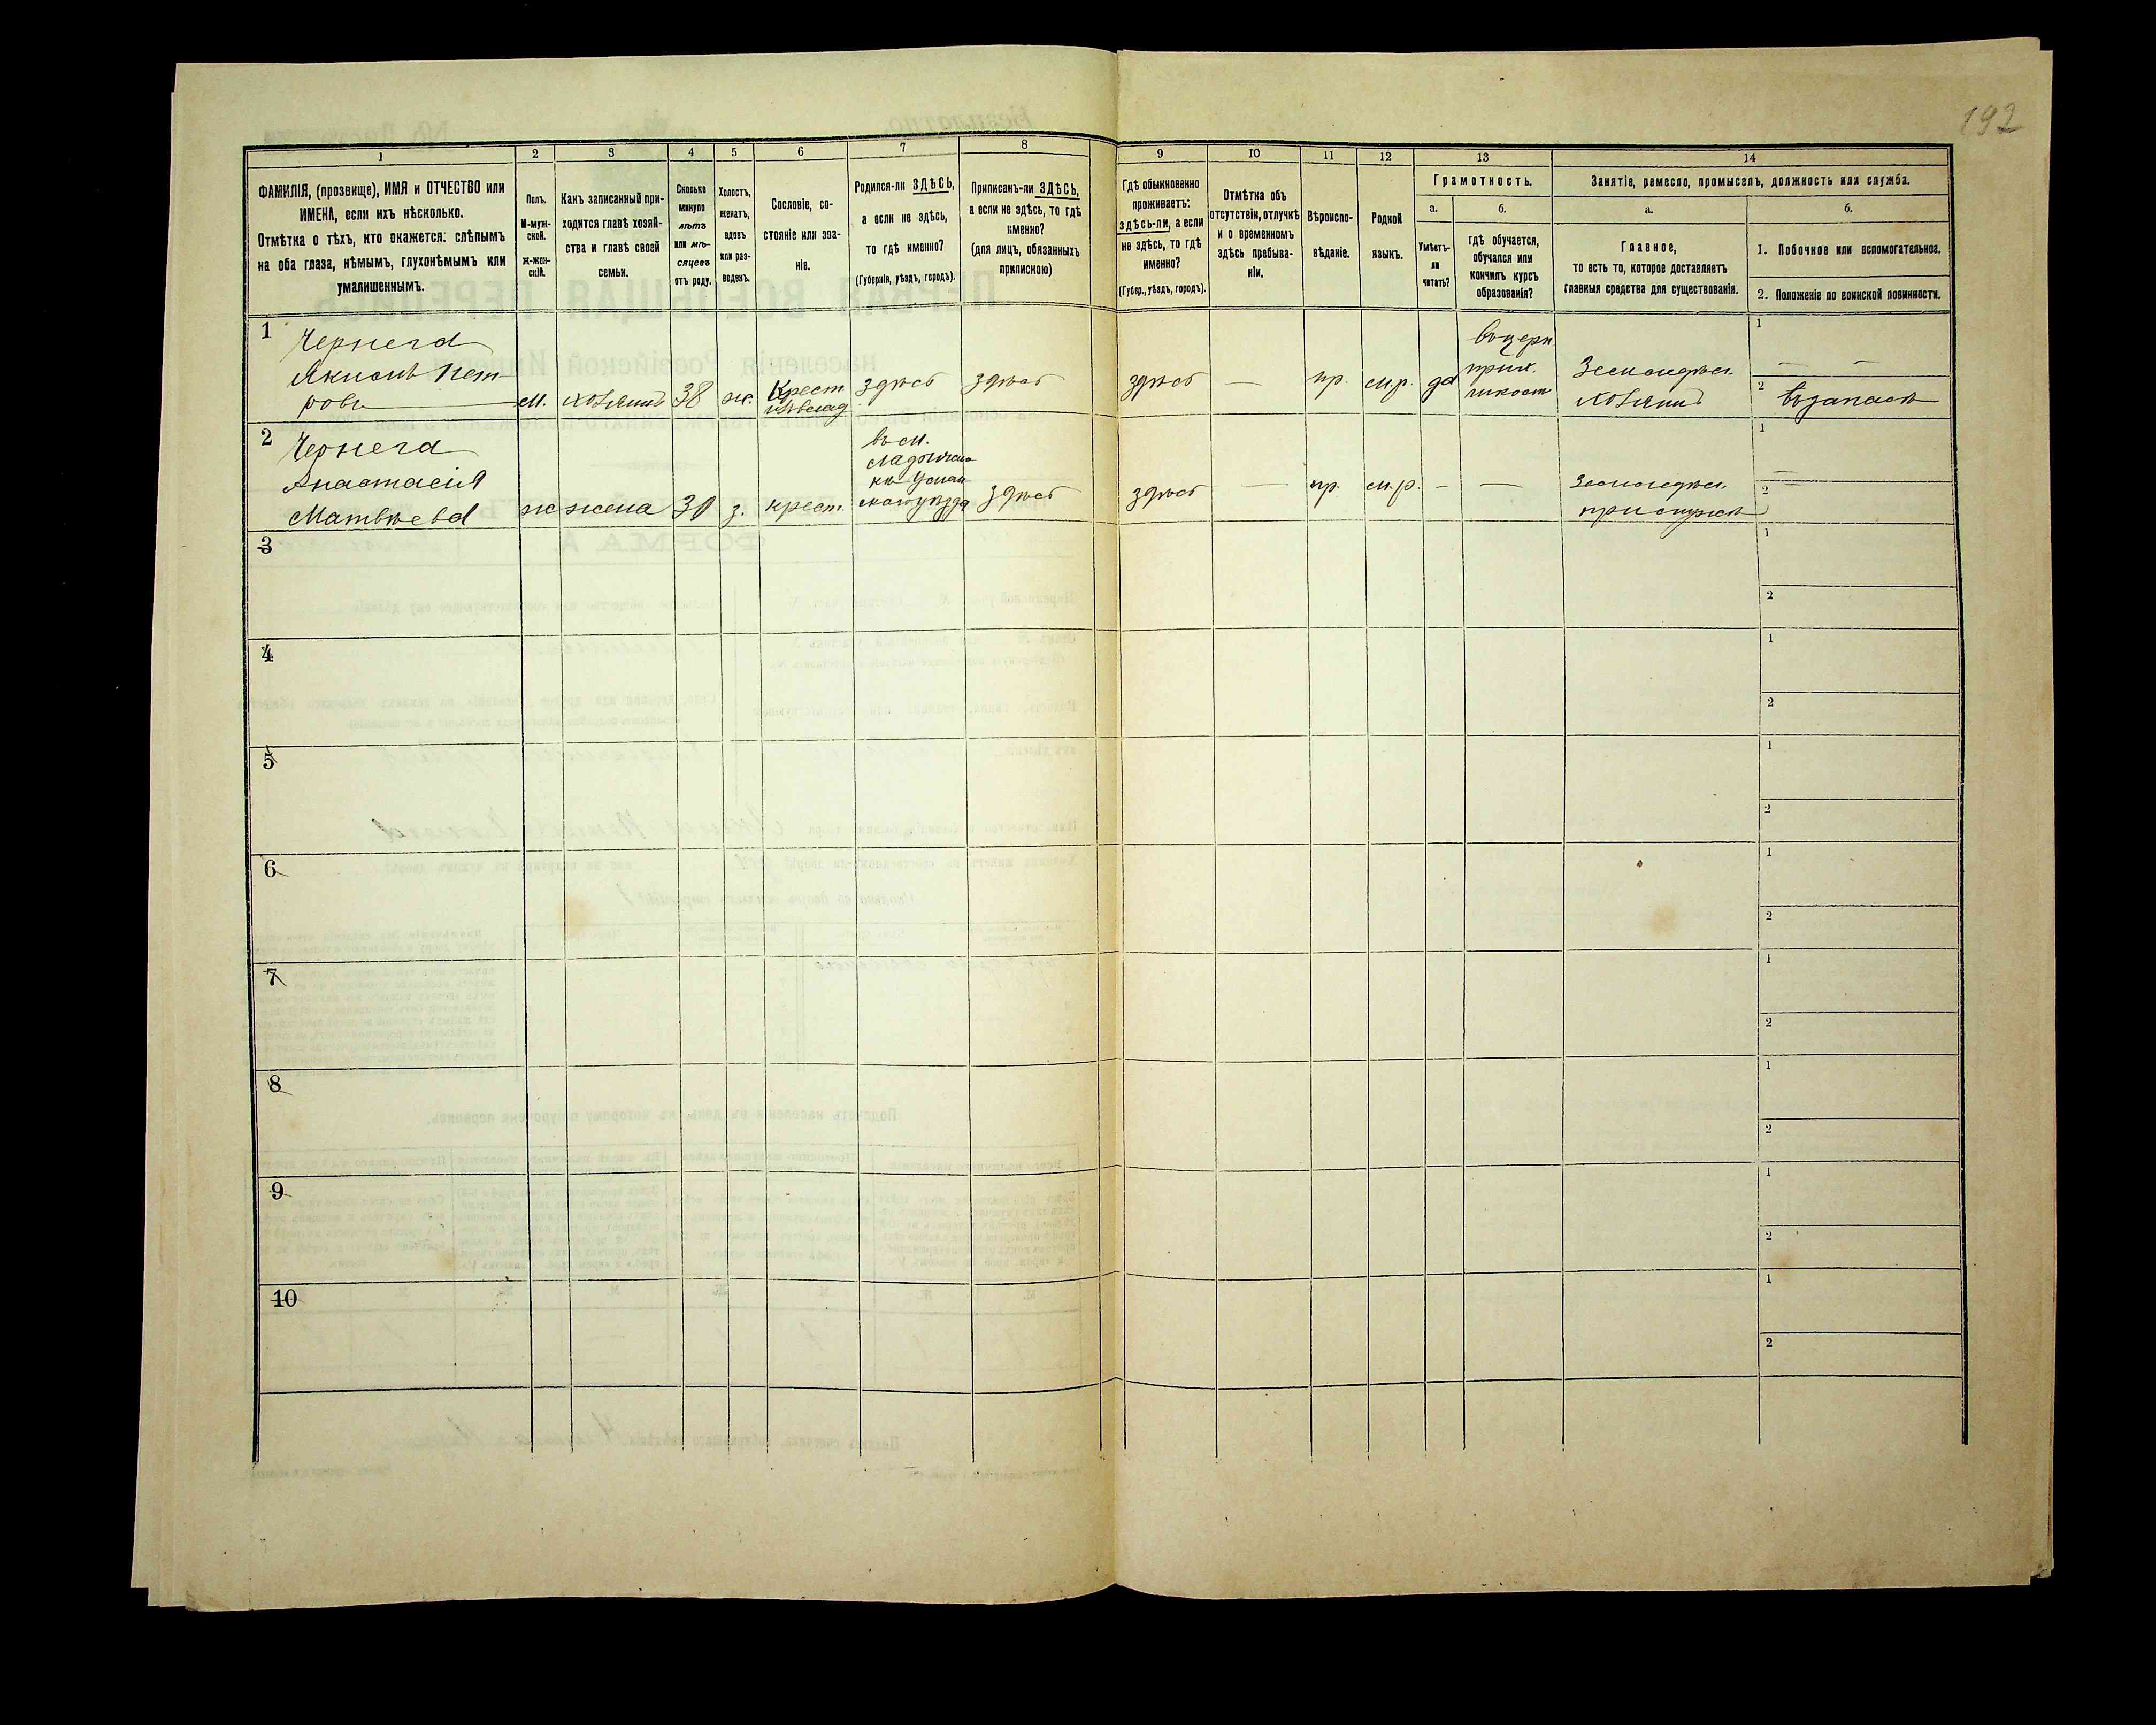 192
1
2
3
4
5
6
7
8
9
10
11
12
13
14
ФАМИЛІЯ, (прозвище), ИМЯ и ОТЧЕСТВО или
ИМЕНА, если ихъ нѣсколько.
Отмѣтка о тѣхъ, кто окажется: слѣпымъ
на оба глаза, нѣмымъ, глухонѣмымъ или
умалишеннымъ.
Полъ.
М-муж-
ской.
Ж-жен-
скій.
Какъ записанный при-
ходится главѣ хозяй-
ства и главѣ своей
семьи.
Сколько
минуло
лѣтъ
или мѣ-
сяцевъ
отъ роду.
Холостъ,
женатъ,
вдовъ
или раз-
веденъ.
Сословіе, со-
стояніе или зва-
ніе.
Родился-ли ЗДѢСЬ,
а если не здѣсь,
то гдѣ именно?
(Губернія, уѣздъ, городъ).
Приписанъ-ли ЗДѢСЬ,
а если не здѣсь, то гдѣ
именно?
(для лицъ, обязанныхъ
припискою)
Гдѣ обыкновенно
проживаетъ:
здѣсь-ли, а если
не здѣсь, то гдѣ
именно?
(Губер., уѣздъ, городъ).
Отмѣтка объ
отсутствіи, отлучкѣ
и о временномъ
здѣсь пребыва-
ніи.
Вѣроиспо-
вѣданіе.
Родной
языкъ.
Грамотность.
а.
Умѣетъ-
ли
читать?
б.
гдѣ обучается,
обучался или
кончилъ курсъ
образованія?
Занятіе, ремесло, промыселъ, должность или служба.
а.
Главное,
то есть то, которое доставляетъ
главныя средства для существованія.
б.
1. Побочное или вспомогательное.
2. Положеніе по воинской повинности.
1
Чернега
Якимъ Пет-
ровъ
м.
хозяинъ
38
ж.
Крест.
здѣсь
здѣсь
здѣсь
—
пр.
м.р.
да
Земледѣл.
хозяинъ
1
— —
2
въ запасѣ
2
Чернега
Анастасія
Матвѣева
ж
жена
з.
крест.
въ м.
здѣсь
здѣсь
—
пр.
м.р.
—
—
Земледѣл.
1
—
2
—
3
1
2
4
1
2
5
1
2
6
1
2
7
1
2
8
1
2
9
1
2
10
1
2